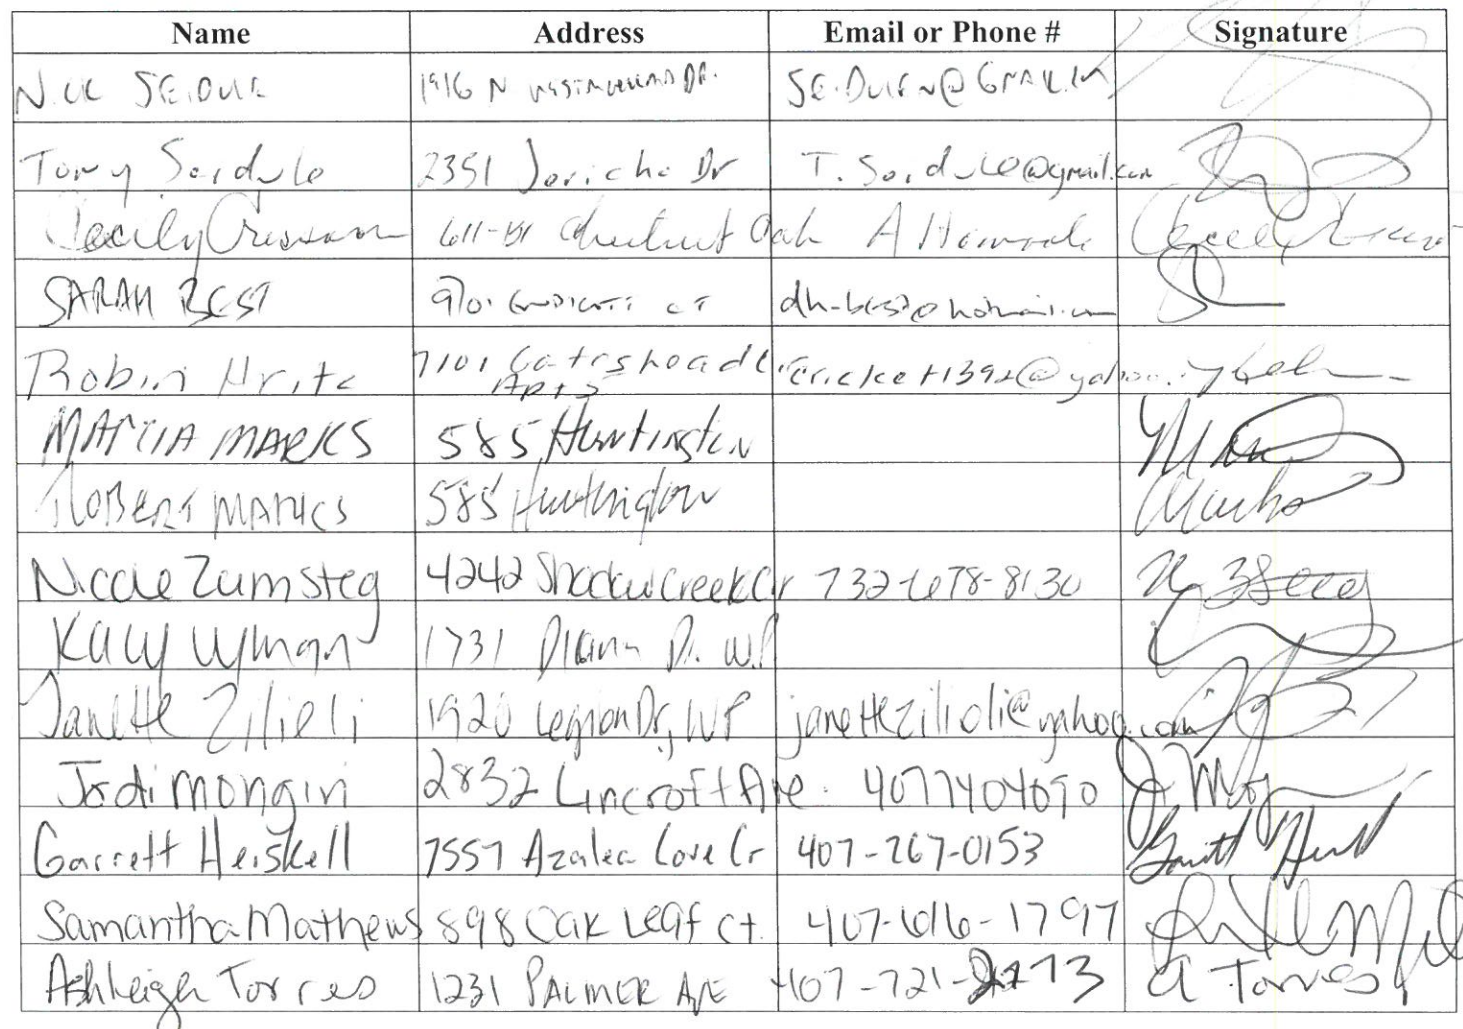 Name Address Email or Phone # Signature
Nick SEIDULE 1916 N DR.
Tony Seidule 2351 Jericho Dr T.Seidule@gmail.com
Cecily Crossman 611-B1 Chestnut Oak Altamonte
SARAH BEST ENDICOTT CT dh-best@hotmail.com
Robin Hritz 7101 Gateshead Cir cricket1392@yahoo.
Apt 5
MARCIA MARKS 585 Huntington
ROBERT MARKS 585 Huntington Marks
Nicole Zumsteg 4242 Shadow Creek Cir 732-678-8130
Kacy Wyman 1731 Diana Dr. W.P
Janette Zilioli 1920 Legion Dr, WP janettezilioli@yahoo.com
Jodi Mongin 2832 Lincroft Ave. 4077404090
Garrett Heiskell 7557 Azalea Cove Cr 407-267-0153
Samantha Mathews 898 Oak Leaf Ct. 407-616-1797
Ashleigh Torres 1231 PALMER AVE 407-721-2173 A Torres